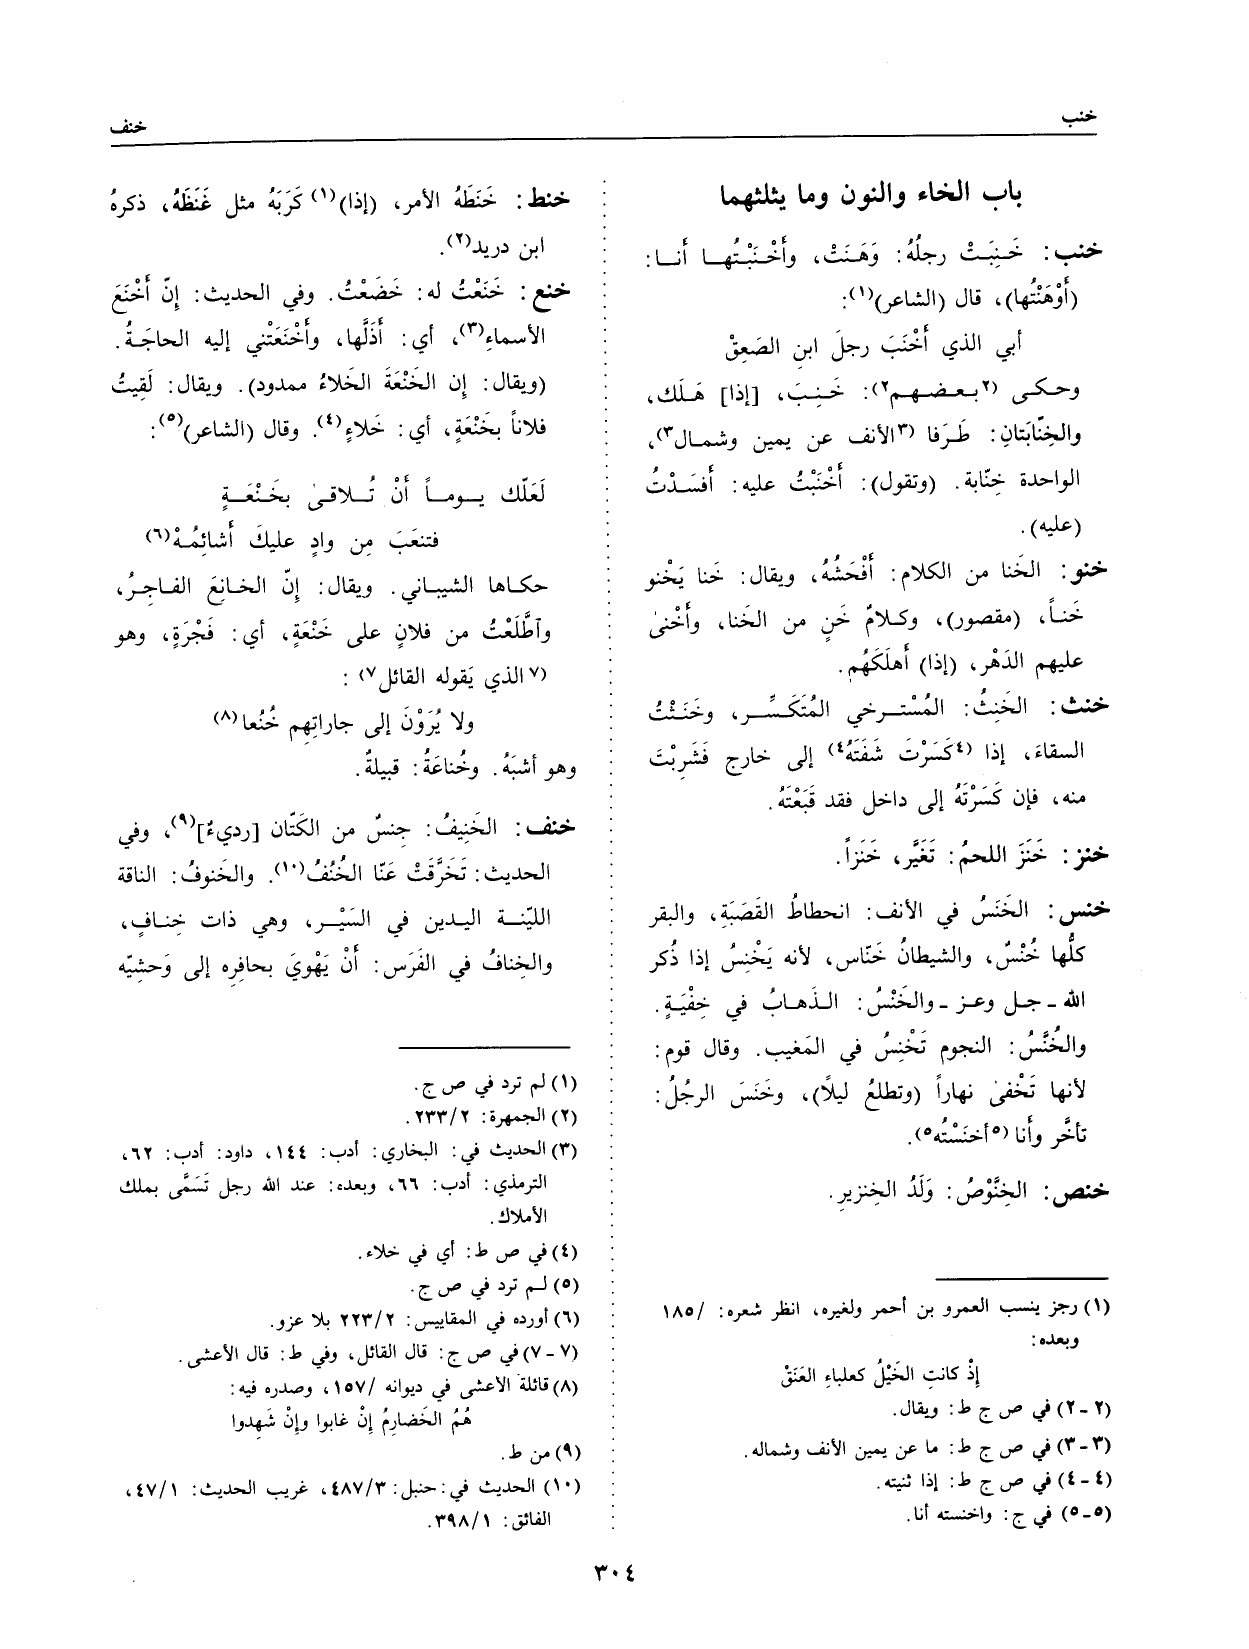 خنب
خنف
باب الخاء والنون وما يثلثهما
خنب: خَنِبَتْ رجلُهُ: وَهَنَتْ، وأَخْنَبْتُها أنا:
(أَوْهَنْتُها)، قال (الشاعر)(١):
أبي الذي أَخْنَبَ رجلَ ابنِ الصَعِقْ
وحكى (٢بعضهم٢): خَنِبَ، [إذا] هَلَك،
والخِنّابَتانِ: طَرَفا (٣الأنف عن يمين وشمال٣)،
الواحدة خِنّابة. (وتقول): أَخْنَبْتُ عليه: أفسَدْتُ
(عليه).
خنو: الخَنا من الكلام: أَفْحَشُهُ، ويقال: خَنا يَخْنو
خَناً، (مقصور)، وكلامٌ خَنٍ من الخَنا، وأَخْنىٰ
عليهم الدَهْر، (إذا) أهلَكَهُم.
خنث: الخَنِثُ: المُسْترخي المُتَكَسِّر، وخَنَثْتُ
السقاءَ، إذا (٤كَسَرْتَ شَفَتَهُ٤) إلى خارج فَشَرِبْتَ
منه، فإن كَسَرْتَهُ إلى داخل فقد قَبَعْتَهُ.
خنز: خَنَزَ اللحمُ: تَغَيَّر، خَنَزاً.
خنس: الخَنَسُ في الأنف: انحطاطُ القَصَبَةِ، والبقر
كلُّها خُنْسٌ، والشيطانُ خَنّاس، لأنه يَخْنِسُ إذا ذُكر
الله - جل وعز - والخَنْسُ: الذهابُ في خِفْيَةٍ.
والخُنَّسُ: النجوم تَخْنِسُ في المَغيب. وقال قوم:
لأنها تَخْفىٰ نهاراً (وتطلعُ ليلاً)، وخَنَسَ الرجُلُ:
تأخَّر وأنا (٥أخنَسْته٥).
خنص: الخِنَّوْصُ: وَلَدُ الخِنزيرِ.
(١) رجز ينسب العمرو بن أحمر ولغيره، انظر شعره: /١٨٥
وبعده:
إذْ كانتِ الخَيْلُ كعلباءِ العَنَقْ
(٢-٢) في ص ج ط: ويقال.
(٣-٣) في ص ج ط: ما عن يمين الأنف وشماله.
(٤-٤) في ص ج ط: إذا ثنيته.
(٥-٥) في ج: واخنسته أنا.
خنط: خَنَطَهُ الأمر، (إذا)(١) كَرَبَهُ مثل غَنَظَهُ، ذكرهُ
ابن دريد(٢).
خنع: خَنَعْتُ له: خَضَعْتُ. وفي الحديث: إنّ أَخْنَعَ
الأسماءِ(٣)، أي: أَذَلَّها، وأَخْنَعَتْني إليه الحاجَةُ.
(ويقال: إن الخَنْعَةَ الخَلاءُ ممدود). ويقال: لَقِيتُ
فلاناً بخَنْعَةٍ، أي: خَلاءٍ(٤). وقال (الشاعر)(٥):
لَعَلّك يوماً أنْ تُلاقىٰ بِخَنْعَةٍ
فتنعَبَ مِن وادٍ عليكَ أَشائِمُهْ(٦)
حكاها الشيباني. ويقال: إنّ الخانِعَ الفاجِرُ،
وآطَّلَعْتُ من فلانٍ على خَنْعَةٍ، أي: فَجْرَةٍ، وهو
(٧الذي يَقوله القائل٧) :
ولا يُرَوْنَ إلى جاراتِهِم خُنُعا(٨)
وهو أشبَهُ. وخُناعَةُ: قبيلةٌ.
خنف: الخَنِيفُ: جِنسٌ من الكَتّان [رديءٌ](٩)، وفي
الحديث: تَخَرَّقَتْ عَنّا الخُنُفُ(١٠). والخَنوفُ: الناقة
الليّنة اليدين في السَيْر، وهي ذات خِنافٍ،
والخِنافُ في الفَرَس: أَنْ يَهْوِيَ بحافِرِه إلى وَحشيّه
(١) لم ترد في ص ج.
(٢) الجمهرة: ٢٣٣/٢.
(٣) الحديث في: البخاري: أدب: ١٤٤، داود: أدب: ٦٢،
الترمذي: أدب: ٦٦، وبعده: عند الله رجل تَسَمَّى بملك
الأملاك.
(٤) في ص ط: أي في خلاء.
(٥) لم ترد في ص ج.
(٦) أورده في المقاييس: ٢٢٣/٢ بلا عزو.
(٧-٧) في ص ج: قال القائل، وفي ط: قال الأعشى.
(٨) قائلة الأعشى في ديوانه /١٥٧، وصدره فيه:
هُمُ الخَضارِمُ إنْ غابوا وإنْ شَهِدوا
(٩) من ط.
(١٠) الحديث في: حنبل: ٤٨٧/٣، غريب الحديث: ٤٧/١،
الفائق: ٣٩٨/١.
٣٠٤